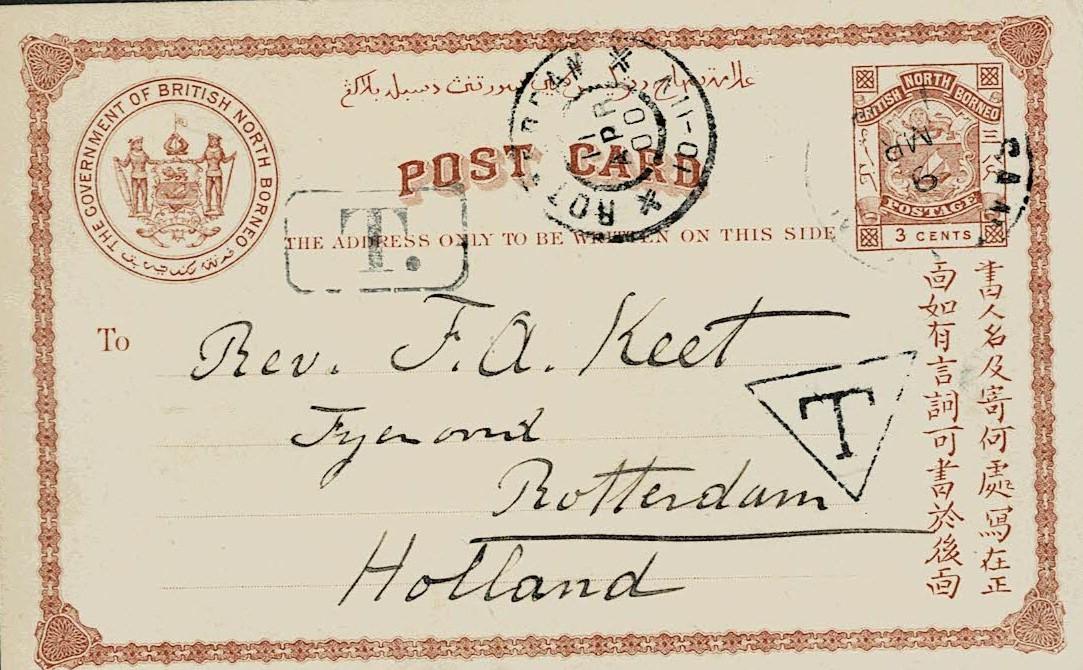 THE GOVERNMENT OF BRITISH NORTH BORNEO
POST CARD
THE ADDRESS ONLY TO BE WRITTEN ON THIS SIDE
BRITISH NORTH BORNEO
POSTAGE
3 CENTS
三
T.
ROTTERDAM
11 APR 00
To
Rev. F. A. Keet
Rotterdam
Holland
T
書人名及寄何處寫在正
面如有言詞可書於後面